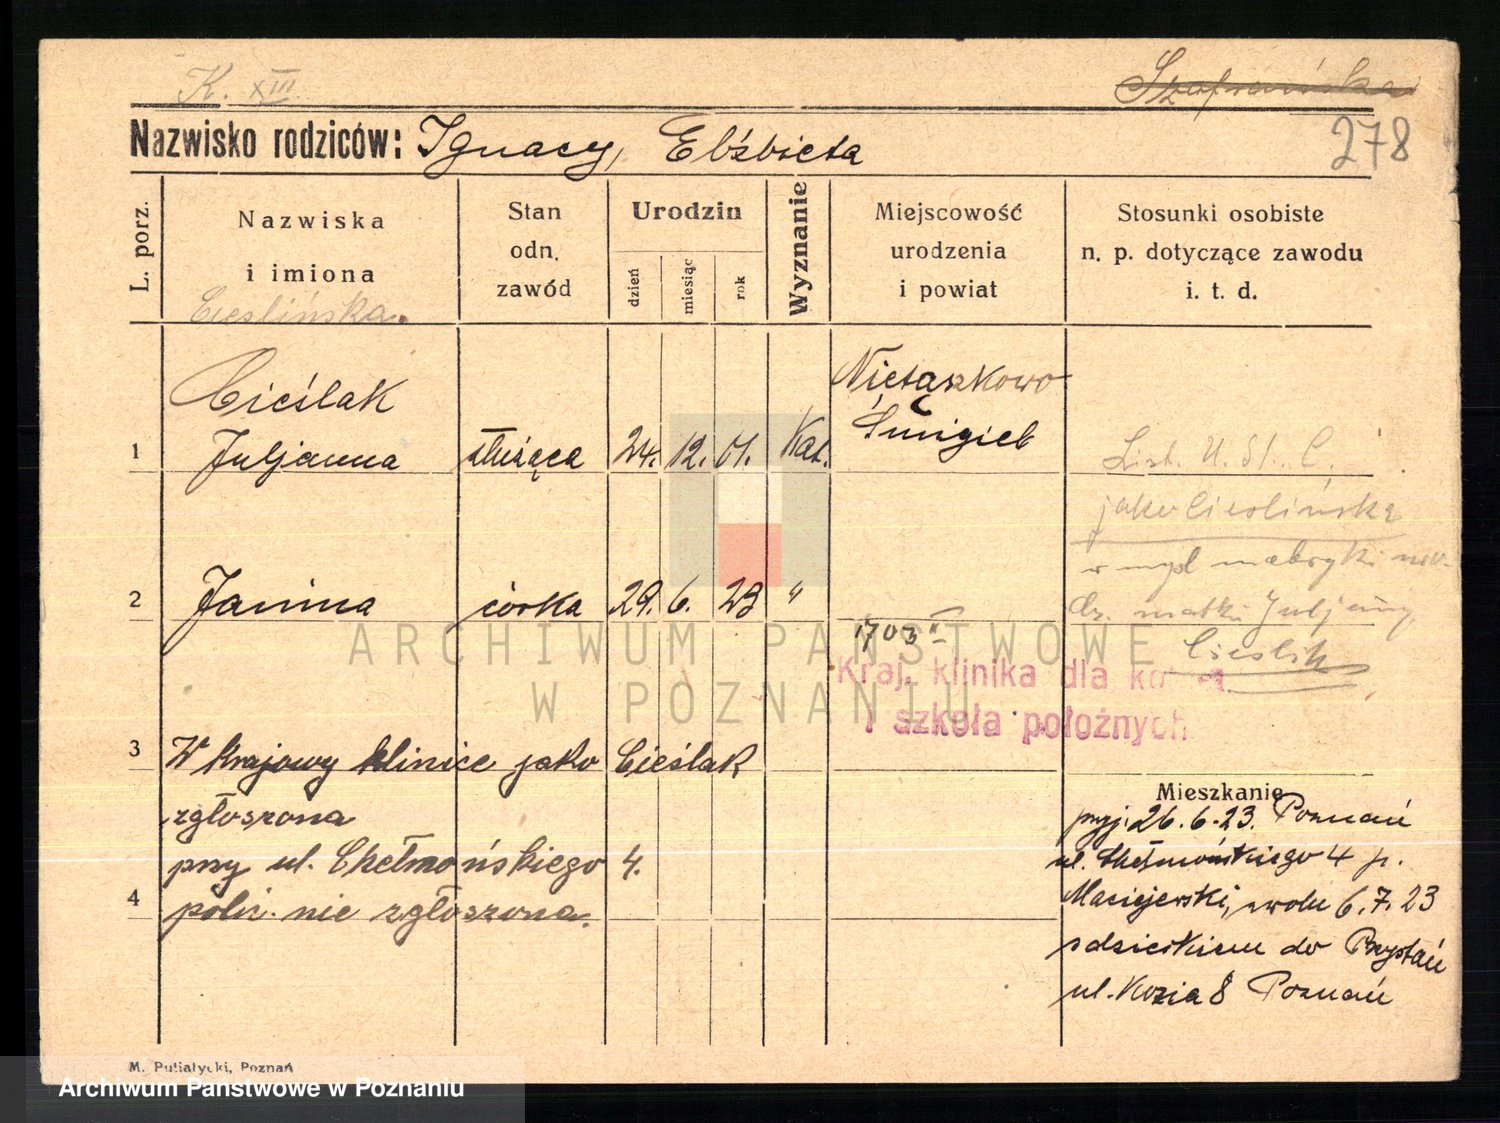 K. XIII.
Szafrańska
Nazwisko rodziców: Ignacy, Elżbieta
278
L. porz.
Nazwiska
i imiona
Cieslińska.
Stan
odn.
zawód
Urodzin
dzień
miesiąc
rok
Wyznanie
Miejscowość
urodzenia
i powiat
Stosunki osobiste
n. p. dotyczące zawodu
i. t. d.
Cieślak
1 Juljanna służąca 24. 12. 01. Kat.
Nietążkowo
Śmigiel
List. U. St. C.
jako Cieslińska
w myśl metryki
matki Juljanny
Cieslik
2 Janina córka 29. 6. 23 "
1703
Kraj. klinika dla kobiet
i szkoła położnych
3 W krajowy klinice jako Cieślak
zgłoszona
przy ul. Chełmońskiego 4.
4 polic. nie zgłoszona.
Mieszkanie
przyj. 26.6.23. Poznań
ul. Chełmońskiego 4 p.
Maciejewski, zwoln 6.7.23
z dzieckiem do Przystań
ul. Kozia 8 Poznań
ARCHIWUM PAŃSTWOWE
W POZNANIU
M. Putiatycki, Poznań
Archiwum Państwowe w Poznaniu